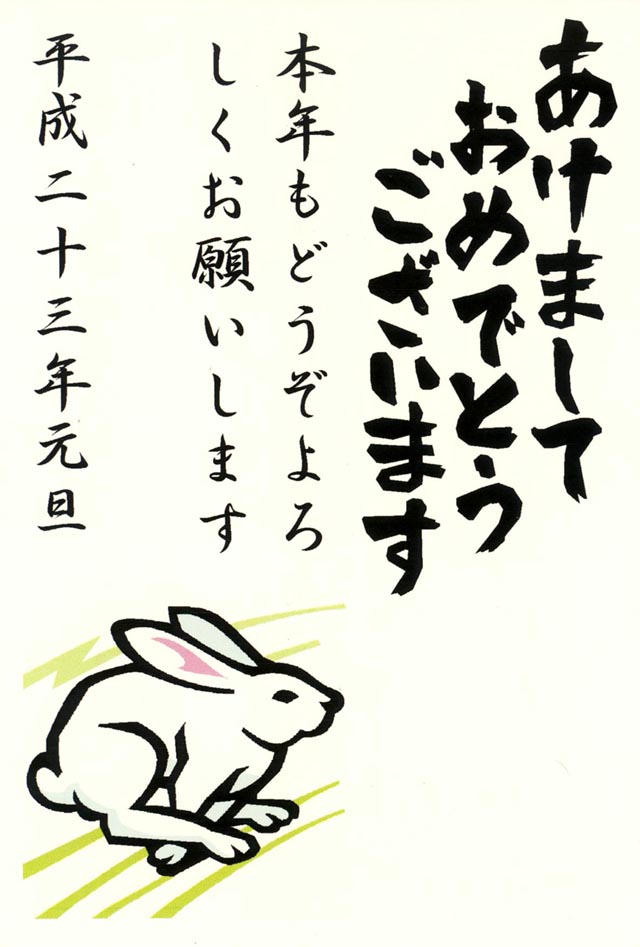 あけまして
おめでとう
ございます
本年もどうぞよろ
しくお願いします
平成二十三年元旦